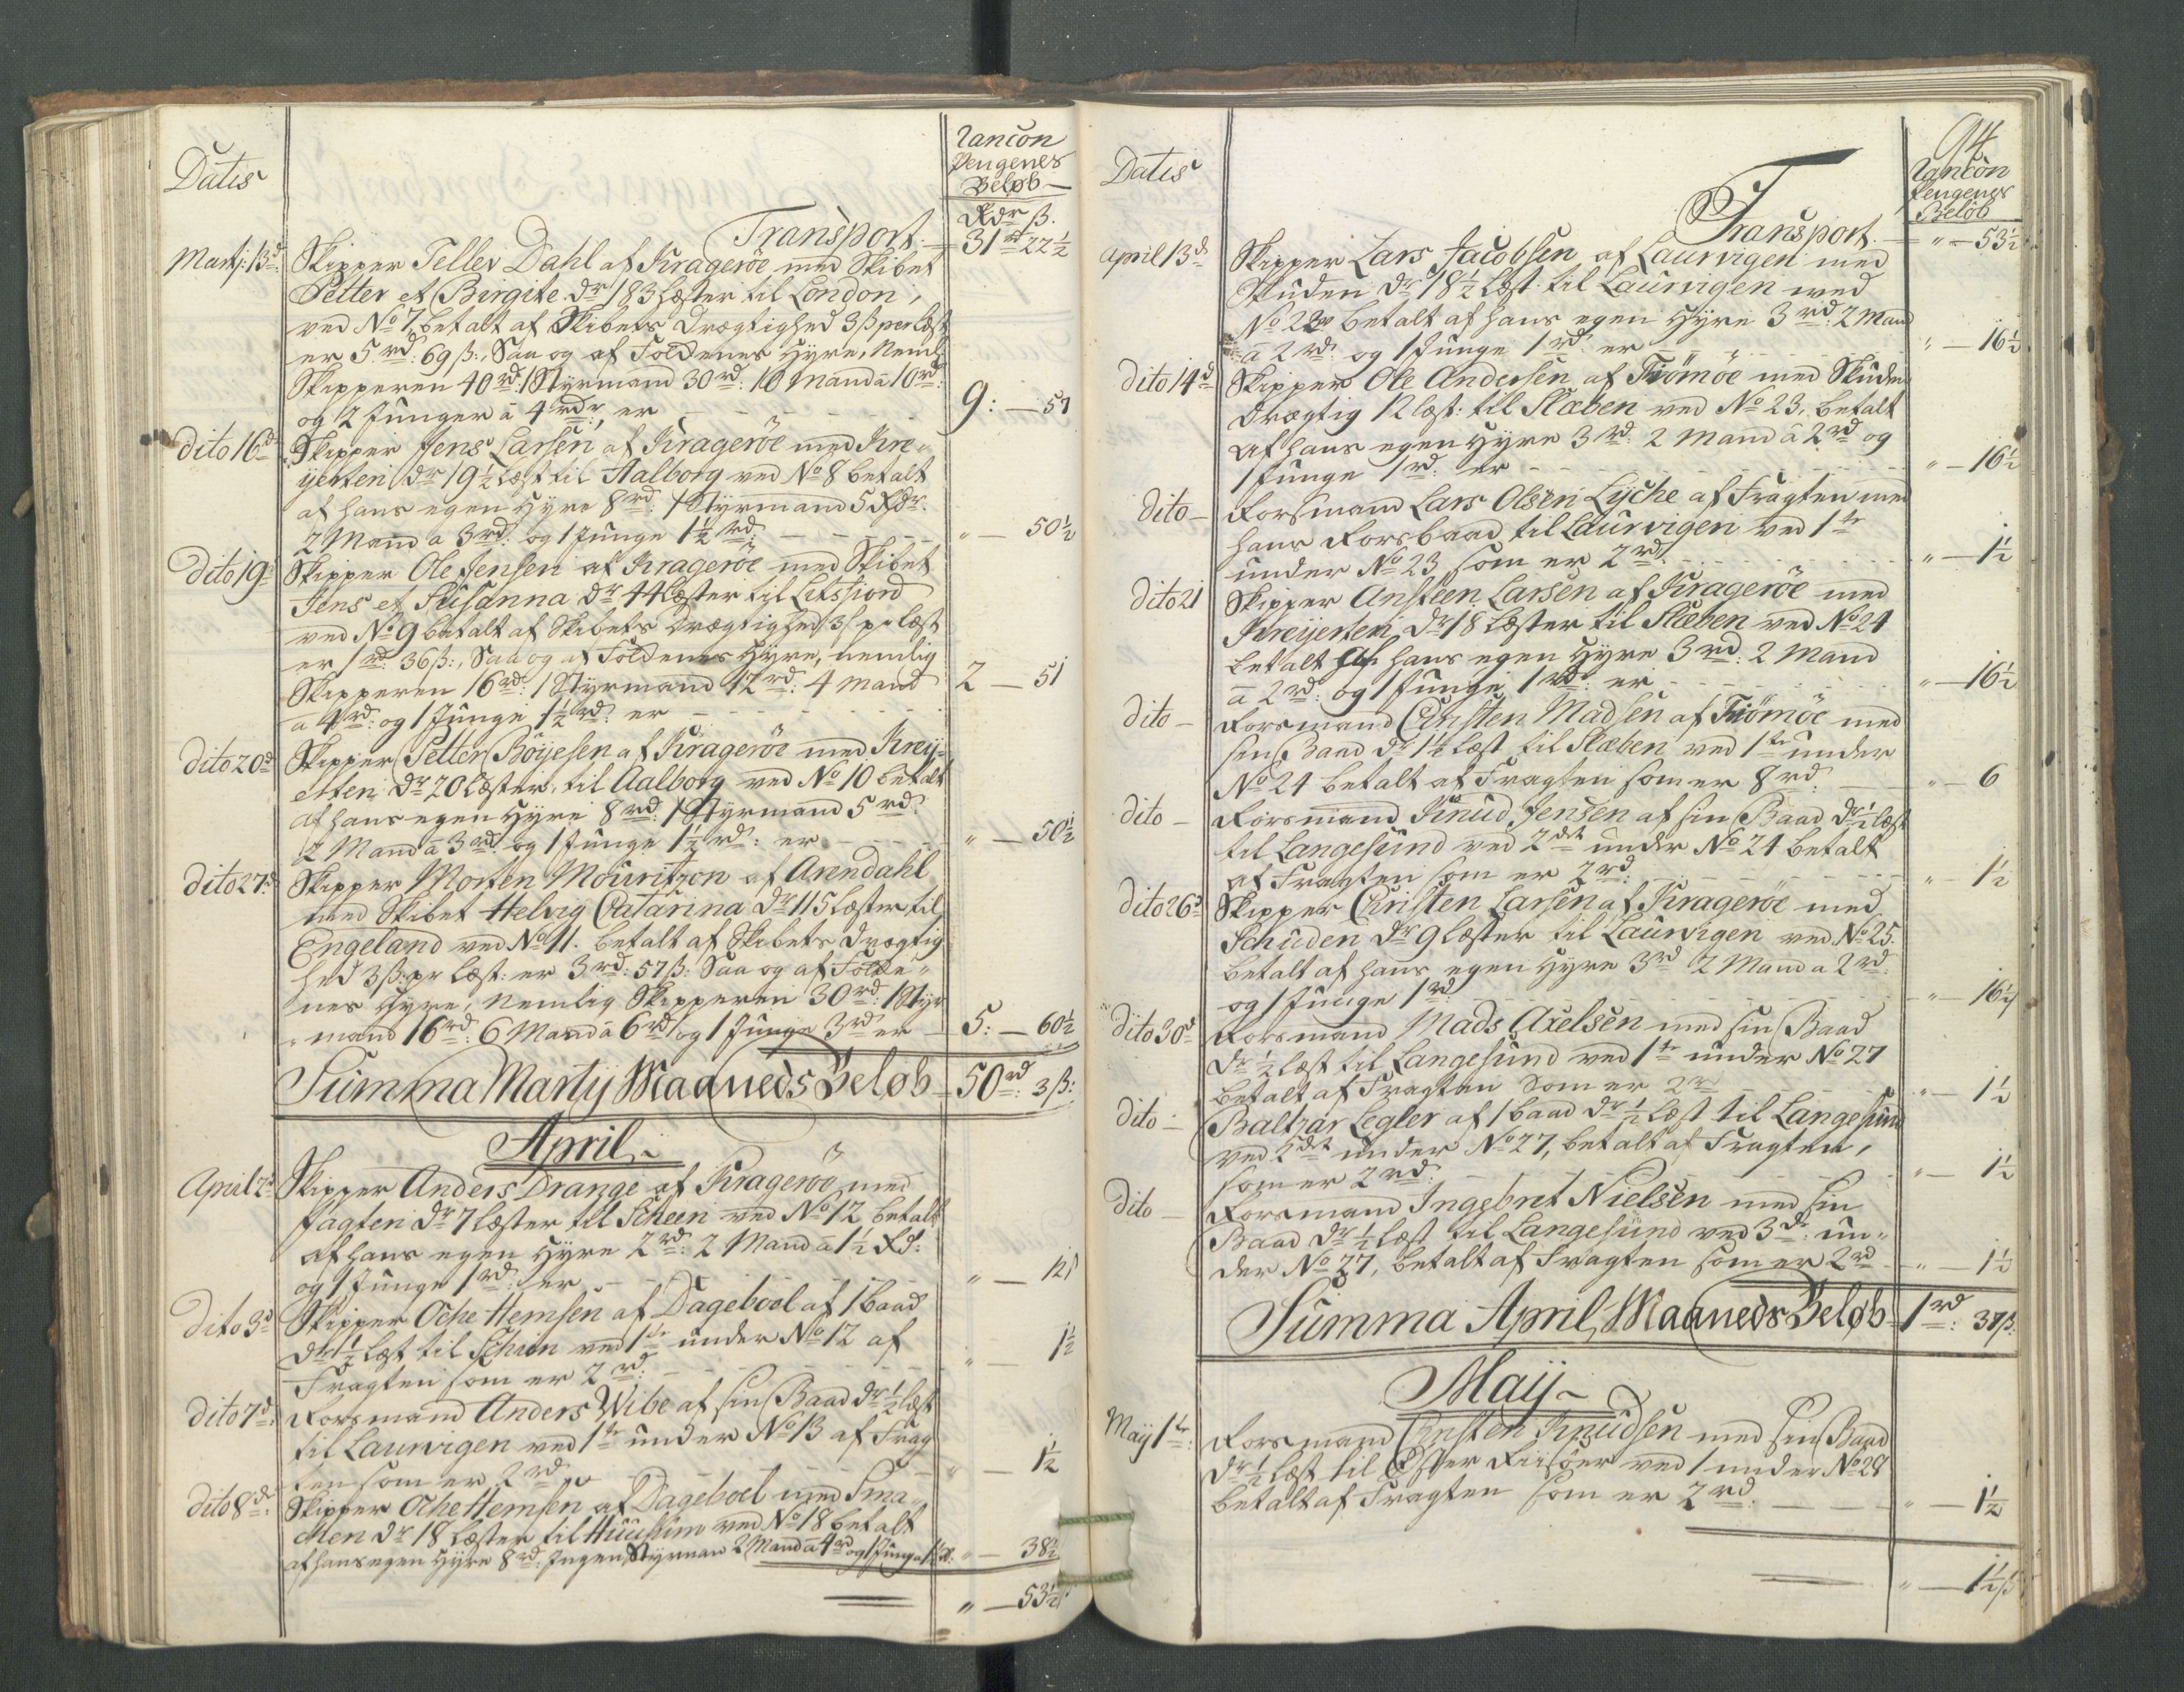 Datis
Rancon
Pengenes
Beløb
Rdr ß.
Transport. — 31rd 22½
Martj: 13d: Skipper Teller Dahl af Kragerøe med Skibet
Petter et Birgite. dr 183 læster til London,
ved No 7, betalt af Skibets Drægtighed 3 ß per læst
er 5rd: 69 ß:, Saa og af Foldenes Hyre, Neml:
Skipperen 40rd: 1 Styrmand 30rd: 10 Mand â 10rd:
og 2 Junger â 4rdr, er — 9: — 57
dito 16d Skipper Jens Larsen, af Kragerøe med Kre-
yerten dr 19½ læst til Aalborg ved No 8 betalt
af hans egen Hyre 8rd: 1 Styrmand 5 Rdr.
2 Mand a 3rd: og 1 Junge 1½ rd: — " — 50½
dito 19d Skipper Ole Jensen af Kragerøe med Skibet
Jens et Susanna dr 44 læster til Letsfiord
ved No 9 betalt af Skibets Drægtighed 3 ß pr læst
er 1rd: 36 ß:, Saa og af Foldenes Hyre, nemlig
Skipperen 16rd: 1 Styrmand 12rd: 4 Mand
a 4rd: og 1 Junge 1½ rd: er — 2 — 51
dito 20d Skipper Petter Böyesen af Kragerøe med Krey-
erten dr 20 læster, til Aalborg ved No 10 betalt
af hans egen Hyre 8rd: 1 Styrmand 5rd:
2 Mand â 3rd: og 1 Junge 1½ rd: er — " — 50½
dito 27d Skipper Morten Mouritzon af Arendahl
med Skibet Helvig Catarina dr 115 læster til
Engeland ved No 11. betalt af Skibets Drægtig
hed 3 ß: pr læst: er 3rd: 57 ß: Saa og af Folde-
nes Hyre, Nemlig Skipperen 30rd: 1 Styr
mand 16rd: 6 Mand â 6rd og 1 Junge 3rd er — 5: — 60½
Summa Martij Maaneds Beløb — 50rd: 3 ß:
April
April 2d Skipper Anders Drange af Kragerøe med
Jagten dr 7 læster til Scheen ved No 12 betalt
af hans egen Hyre 2rd: 2 Mand â 1½ Rd:
og 1 Junge 1rd: er — " — 12
dito 3d Skipper Oche Hemsen af Dageboel af 1 baad
dr ½ læst til Schien ved 1te under No 12 af
Fragten som er 2rd: — " — 1½
dito 7d: Forsmand Anders Wibe af sin Baad dr ½ læst
til Laurvigen ved 1te under No 13 af Frag
ten som er 2rd — " — 1½
dito 8de: Skipper Oche Hemsen af Dageboel med Sma-
cken dr 18 læster til Huusum ved No 18 betalt
af hans egen Hyre 8rd: Ingen Styrman 2 Mand â 4rd og 1 Junge 1½ rd. " — 38½
" — 53½
94
Datis
Rancon
Pengenes
Beløb
Transport. — " — 53½
April 13d Skipper Lars Jacobsen af Laurvigen med
Skuden dr 18½ læst: til Laurvigen med
No 22 betalt af hans egen Hyre 3rd: 2 Mand
â 2rd: og 1 Junge 1rd: er — " — 16½
dito 14d Skipper Ole Andersen af Tiömöe med Skuden
drægtig 12 læst: til Slæben ved No 23, betalt
af hans egen Hyre 3rd: 2 Mand â 2rd og
1 Junge 1rd: er — " — 16½
dito — Forsmand Lars Olsen Lyche af Fragten med
hans Forsbaad til Laurvigen ved 1te
under No 23 som er 2rd: — " — 1½
dito 21 Skipper Ansteen Larsen af Kragerøe med
Kreijerten dr 18 læster til Slæben ved No 24
betalt af hans egen Hyre 3rd: 2 Mand
â 2rd: og 1 Junge 1rd: er — " — 16½
dito — Forsmand Christen Madsen af Tiömöe med
sin Baad dr 1½ læst til Slæben ved 1te under
No 24 betalt af Fragten som er 8rd: — " — 6
dito — Forsmand Knud Jensen af sin Baad dr ½ læst
til Langesund ved 2det under No 24 betalt
af Fragten som er 2rd: — " — 1½
dito 26d Skipper Christen Larsen af Kragerøe med
Schuden dr 9 læster til Laurvigen ved No 25.
betalt af hans egen Hyre 3rd 2 Mand a 2rd:
og 1 Junge 1rd: — " — 16½
dito 30d Forsmand Mads Axelsen med sin Baad
dr ½ læst til Langesund ved 1te under No 27
betalt af Fragten som er 2rd — " — 1½
dito — Baltzar Legler af 1 baad dr ½ læst til Langesund
ved 2det under No 27, betalt af Fragten,
som er 2rd: — " — 1½
dito — Forsmand Ingebret Nielsen med sin
Baad dr ½ læst til Langesund ved 3de: un-
der No 27, betalt af Fragten som er 2rd — " — 1½
Summa April Maaneds Beløb — 1rd: 37 ß.
Maij
Maij 1te: Forsmand Christen Knudsen med sin Baad
dr ½ læst til Öster Riisöer ved 1 under No 28
betalt af Fragten som er 2rd: — " — 1½
" — 1½ ß